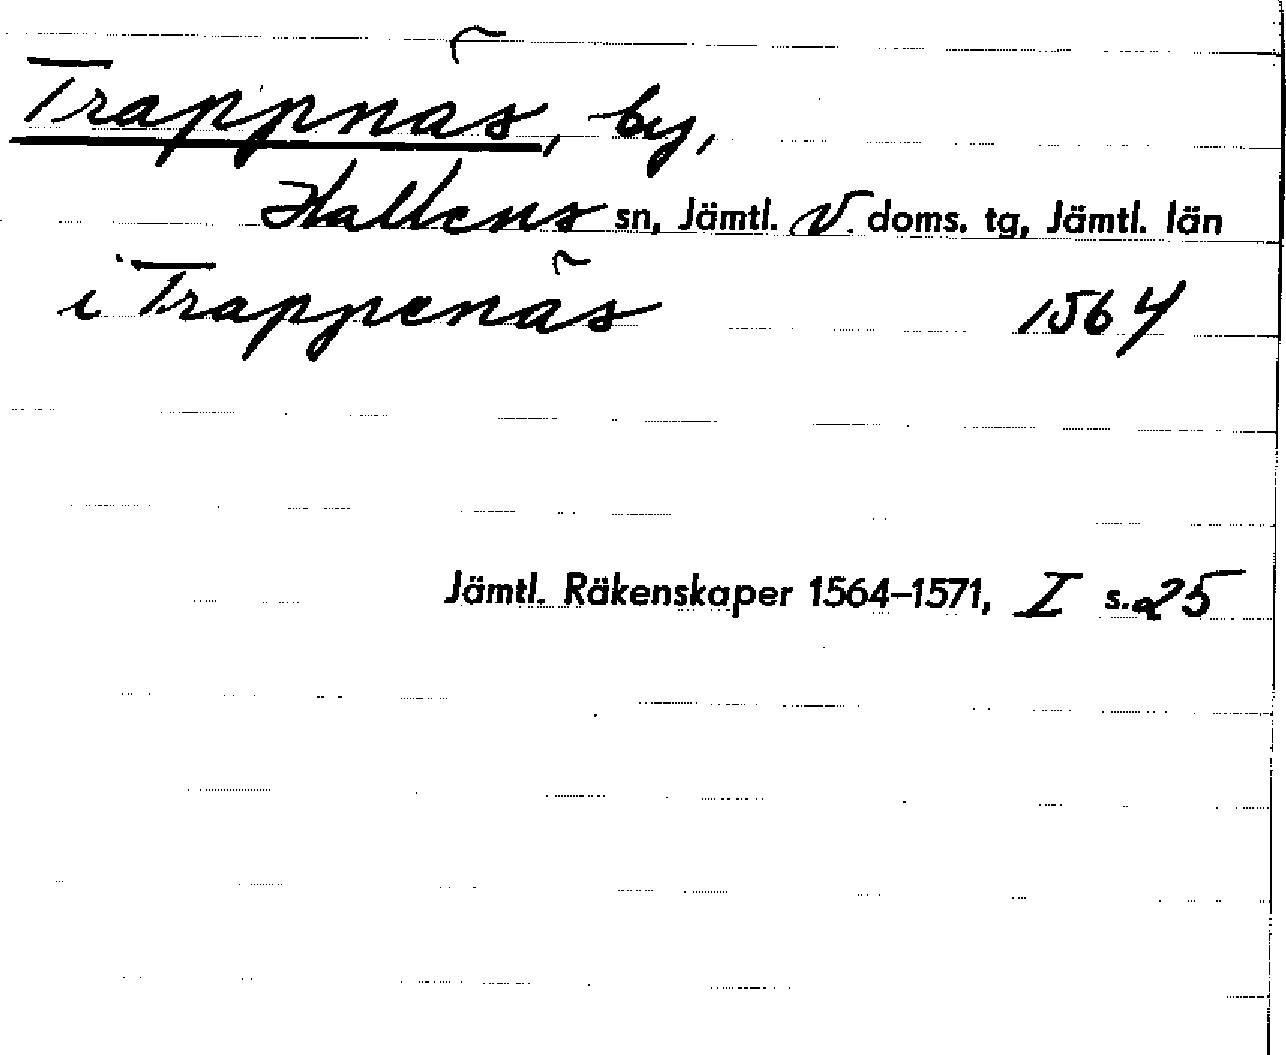 Trappnäs, by,
Hallens sn, Jämtl. V. doms. tg, Jämtl. län
i Trappenäs 1564
Jämtl. Räkenskaper 1564–1571, I s. 25